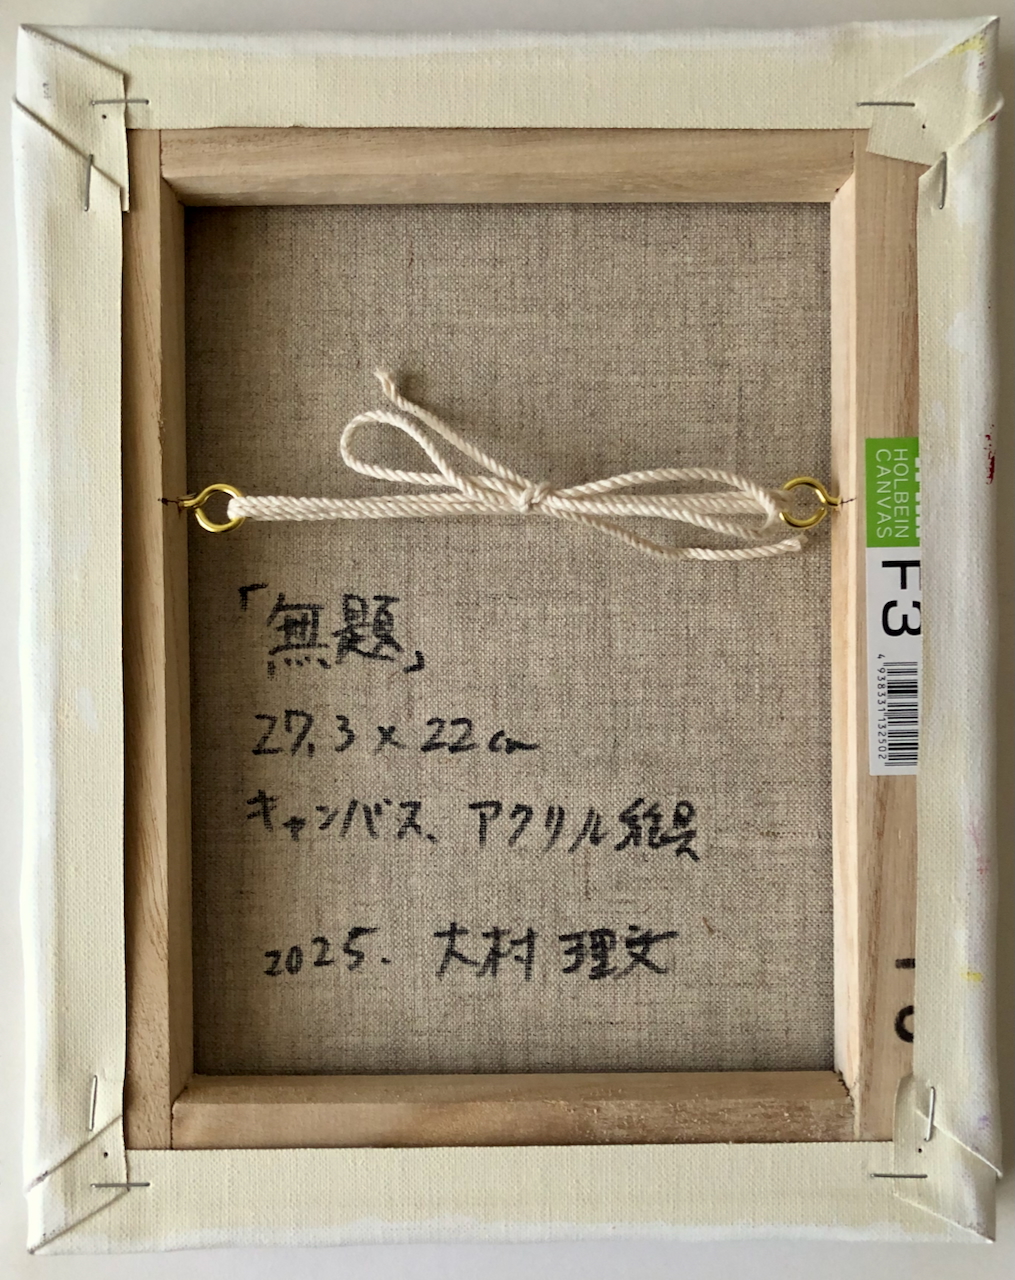 「無題」
27.3 × 22 cm
キャンバス、アクリル絵具
2025. 大村 理文
HOLBEIN
CANVAS
F3
4938331132502